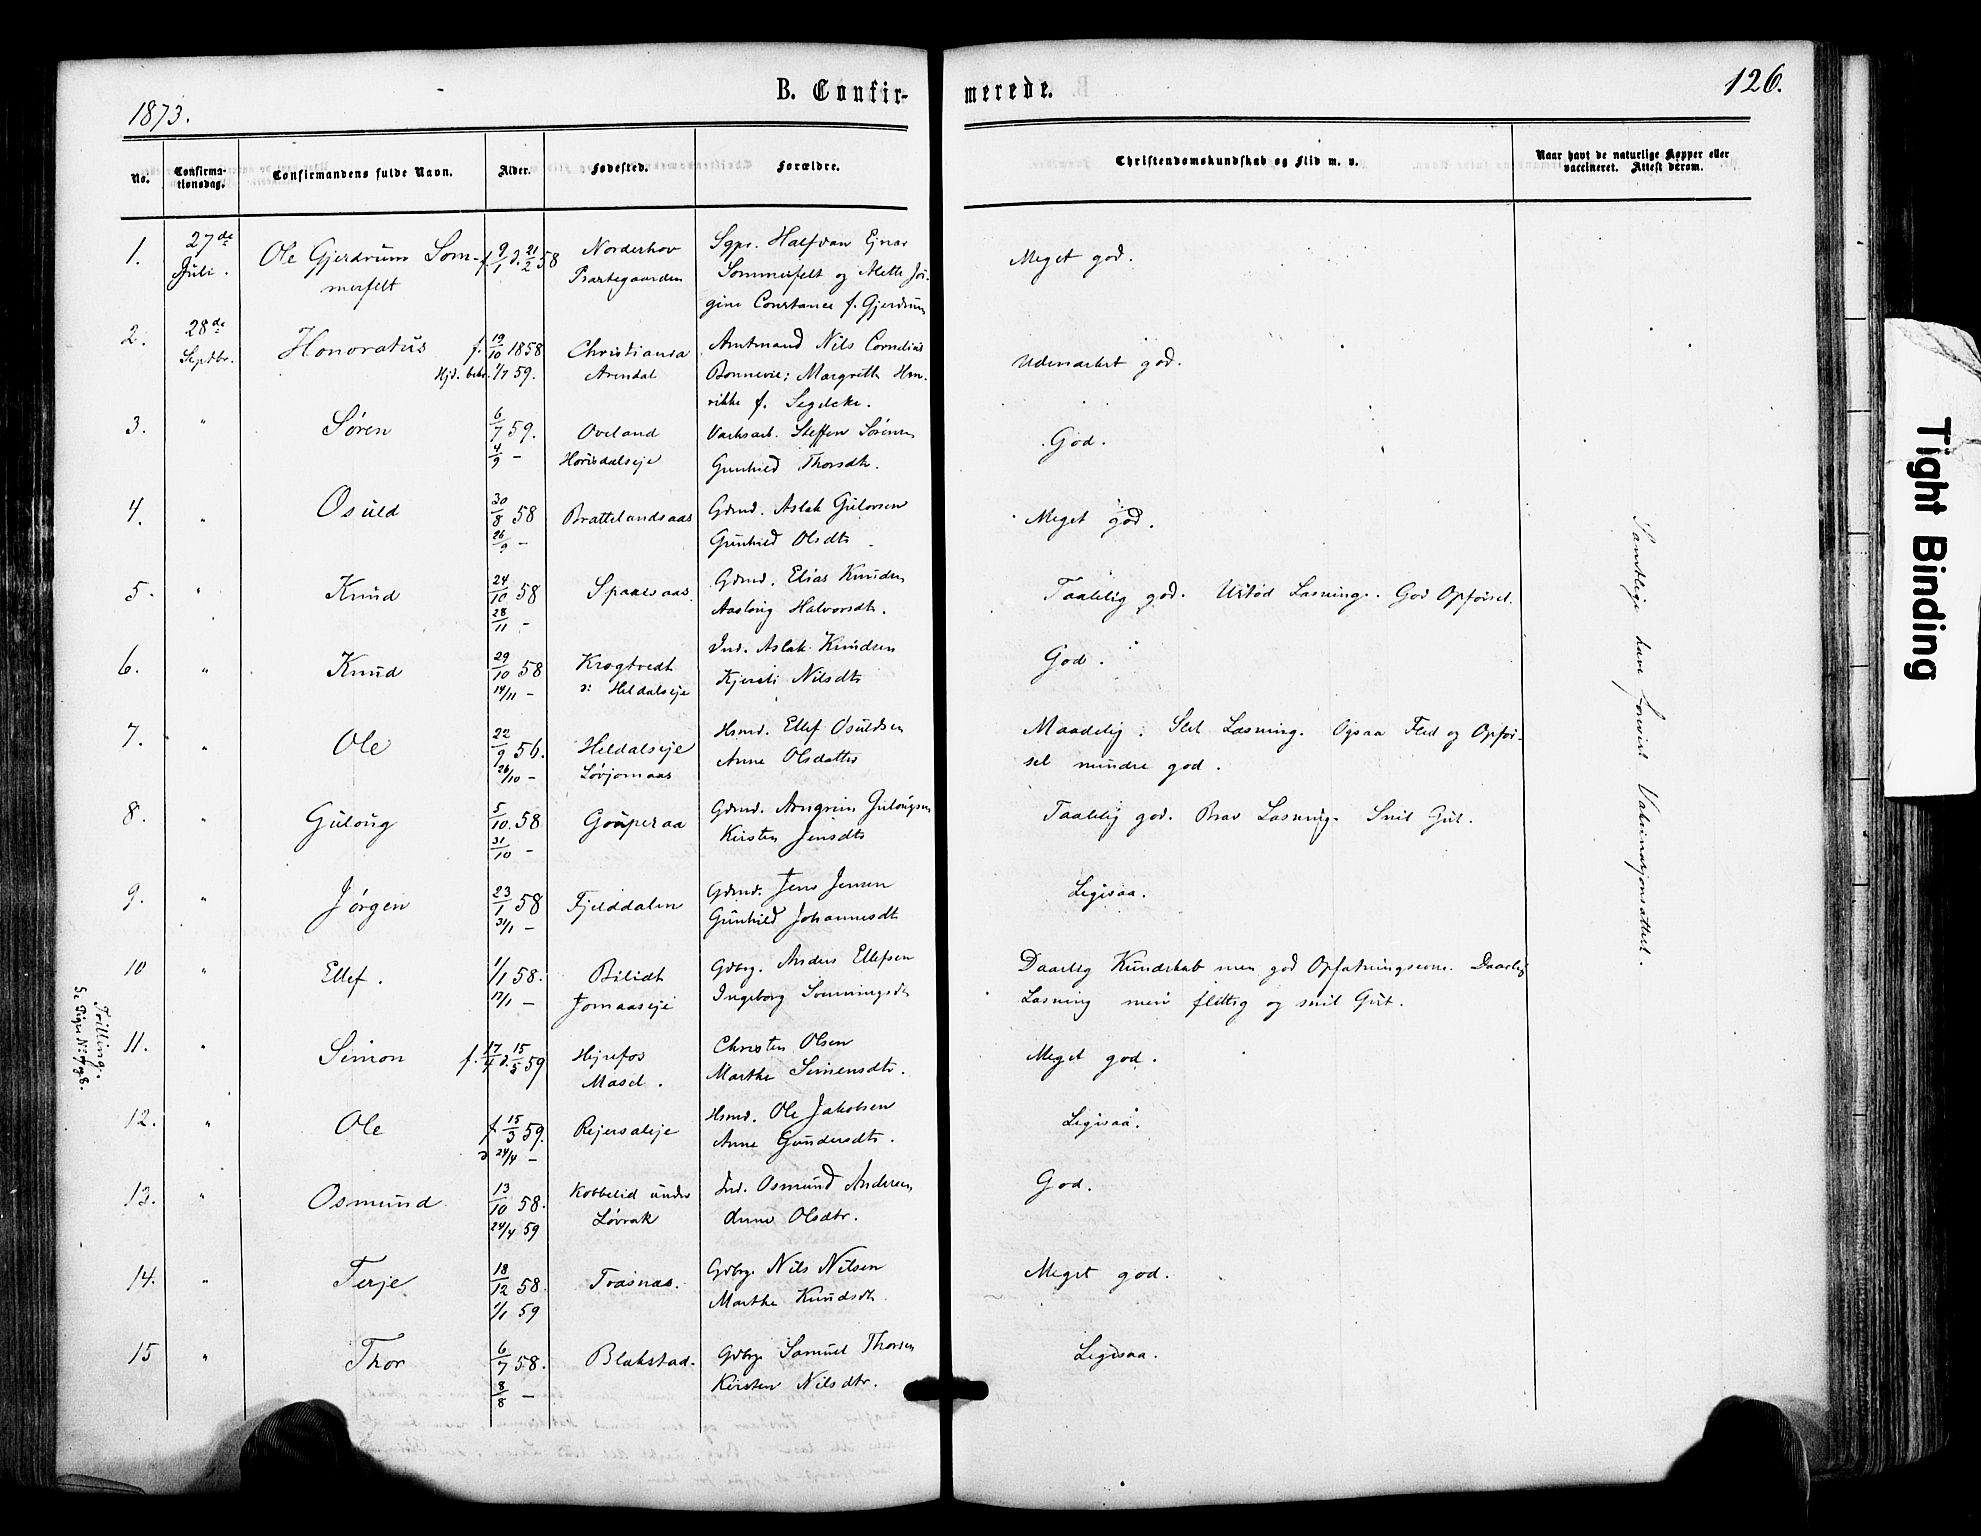 1873.
B. Confir-
merede.
126.
No.
Confirma-
tionsdag.
Confirmandens fulde Navn.
Alder.
Fødested.
Forældre.
Christendomskundskab og Flid m. v.
Naar havt de naturlige Kopper eller
vaccineret. Attest derom.
1. 27de Juli. Ole Gjerdrum Som-
merfelt
f. 9/1 d. 21/2 58
Norderhov
Præstegaarden
Sgpr. Halfdan Ejnar
Sommerfelt og Alette Jör-
gine Constance f. Gjerdrum
Meget god.
2. 28de Septbr. Honoratus
f. 19/10 1858
Hjd. bekr. 1/7 59.
Christiansa
Arendal
Amtmand Nils Cornelius
Bonnevie; Margrethe Hen-
rikke f. Segelcke.
Udmærket god.
3. " Søren
6/7 59.
4/9 -
Oveland
Horisdalseje
Værksarb. Steffen Sørense
Gunhild Thorsdtr.
God.
4. " Osuld
30/8 58
26/9 -
Brattelandsaas
Gdmd. Aslak Gulovsen
Gunhild Olsdtr
Meget god.
5. " Knud
24/10 58
28/11 -
Spaasaas
Gdmd. Elias Knudsn
Aaslöug Halvorsdtr.
Taalelig god. Ustød Læsning. God Opførsel.
6. " Knud
29/10 58
14/11 -
Krogtvedt
s: Heldalseje
Ind. Aslak Knudsen
Kjersti Nilsdtr
God.
7. " Ole
22/9 56.
26/10 -
Heldalseje
Løvjomaas
Hsmd. Ellef Osuldsen
Anne Olsdatter
Maadelig. Slet Læsning. Ogsaa Flid og Opfør-
sel mindre god.
8. " Guloug
5/10. 58
31/10 -
Gouperaa
Gdmd. Arngrim Gulougsen
Kirsten Jensdtr
Taalelig god. Brav Læsning. Snil Gut.
9. " Jørgen
23/1 58
31/1 -
Fjelddalen
Gdmd. Jens Jensen
Gunhild Johannesdtr
Ligesaa.
10 " Ellef.
1/1 58.
17/1 -
Bilidt
Jomaaseje
Gdbrg. Anders Ellefsen
Ingeborg Sonningsdtr
Daarlig Kundskab men god Opfatningsevne. Daarlig
Læsning men flittig og snil Gut.
Trilling.
Se Pige No 7 og 8.
11. " Simon
f. 17/4 d. 15/5 59
Hejrefos
Masel.
Christen Olsen
Marthe Simensdtr.
Meget god.
12. " Ole
f 15/3 59.
d 24/4 -
Rejersaleje
Hsmd. Ole Jakobsen
Anne Gundersdtr.
Ligesaa.
13. " Osmund
13/10 58.
24/4 59
Kobbelid under
Løvrak
Ind. Osmund Andersen
Anne Olsdtr.
God.
14. " Terje
18/12 58.
1/1 59
Traasnæs.
Gdbrg Nils Nilsen
Marthe Knudsdtr.
Meget god.
15 " Thor
6/7 58.
8/8 -
Blakstad.
Gdbrg Samuel Thorsen
Kirsten Nilsdtr.
Ligesaa.
Samtlige have forevist Vakcinasjonsattest.
Tight Binding